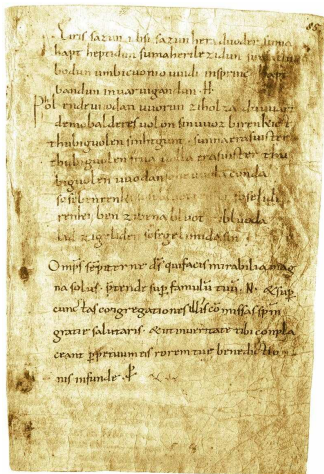 Eiris sazun idisi sazun hera duoder suma
hapt heptidun suma herilezidun sumaclu
bodun umbicuonio uuidi insprinc hapt
bandun inuar uigandun · H ·
Phol endeuuodan uuorun ziholza du uuart
demobalderes uolon sinuuoz birenkict
thubiguolen sinhtgunt · sunnaerasuister
thubiguolen friia uolla erasuister thu
biguolen uuodan sohe uuolaconda
sosebenrenki sosebluotrenki soselidi
renki ben zibena bluot zibluoda
lid zigeliden sosegelimidasin
Omps sēpiterne ds̄ quifacis mirabilia mag
na solus · p̄tende sup famulū tuū · N · & sup
cunctas congregationes illis cōmissas spm̄
gratie salutaris · & ut inueritate tibi conpla
ceant ꝑpetuum eis rorem tuę benedictio
nis infunde ·